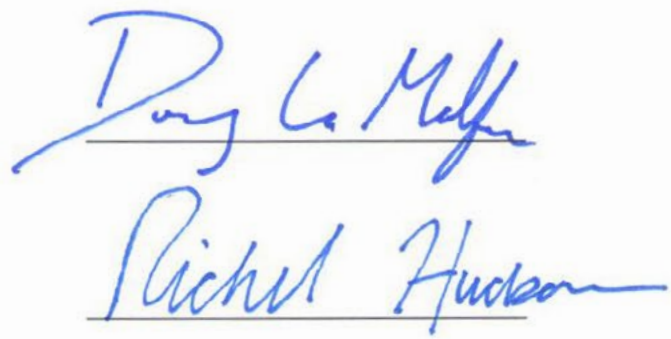 Doug La Malfa
Richard Hudson